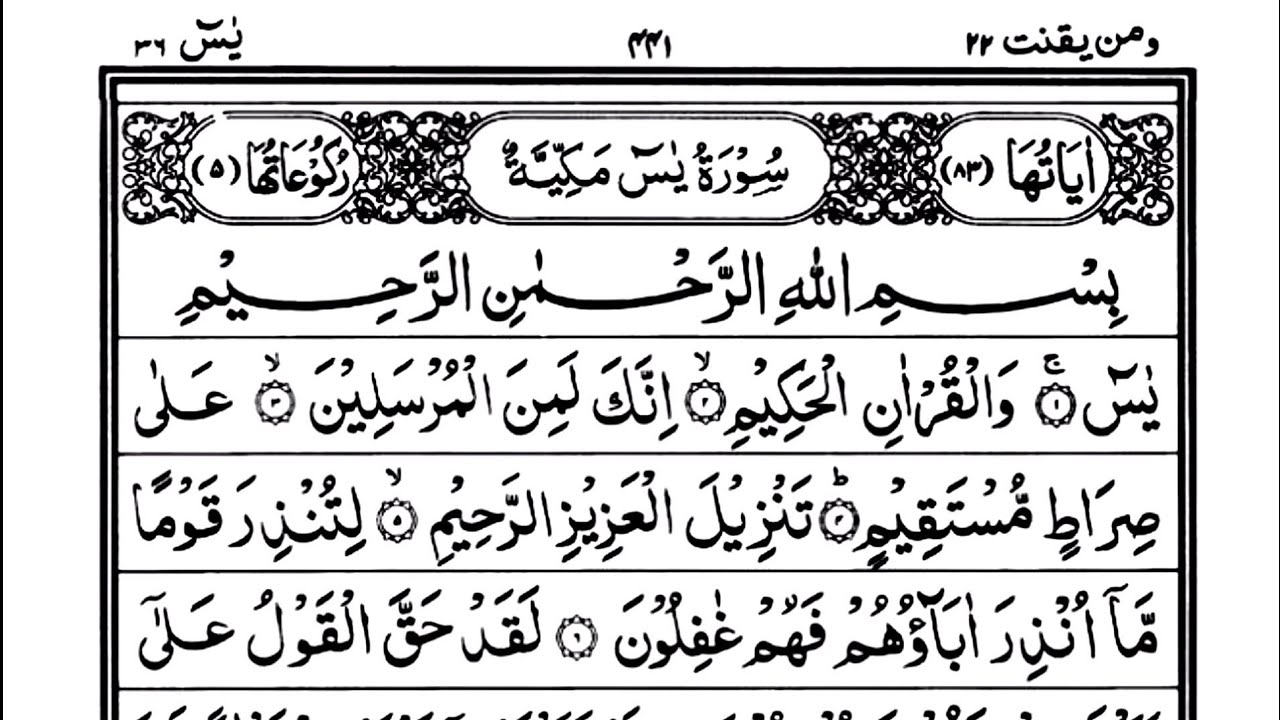 ومن یقنت ۲۲ ۴۴۱ یٰسٓ ۳۶
اٰیَاتُهَا (۸۳) سُوْرَةُ یٰسٓ مَكِّیَّةٌ رُكُوْعَاتُهَا (۵)
بِسْمِ اللهِ الرَّحْمٰنِ الرَّحِیْمِ
یٰسٓ ۚ‏﴿۱﴾ وَالْقُرْاٰنِ الْحَكِیْمِ ۙ﴿۲﴾ اِنَّكَ لَمِنَ الْمُرْسَلِیْنَ ۙ﴿۳﴾ عَلٰی
صِرَاطٍ مُّسْتَقِیْمٍ ؕ﴿۴﴾ تَنْزِیْلَ الْعَزِیْزِ الرَّحِیْمِ ۙ﴿۵﴾ لِتُنْذِرَ قَوْمًا
مَّاۤ اُنْذِرَ اٰبَآؤُهُمْ فَهُمْ غٰفِلُوْنَ ﴿۶﴾ لَقَدْ حَقَّ الْقَوْلُ عَلٰۤی